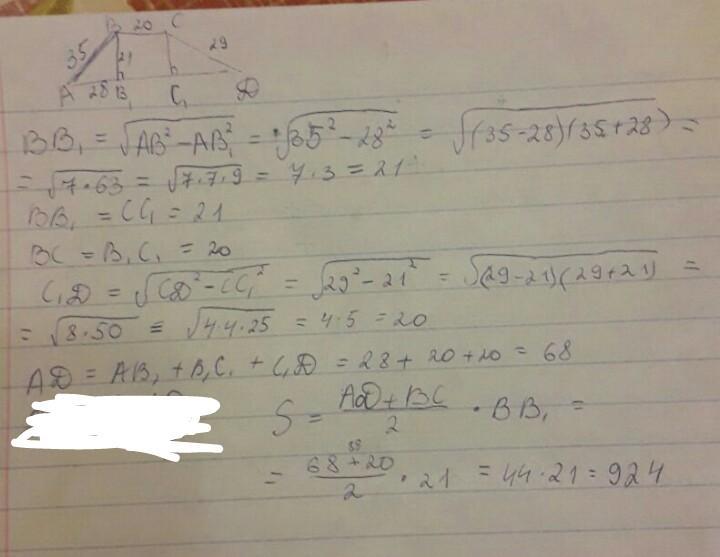 B 20 C
35 21 29
A 28 B₁ C₁ D
BB₁ = √(AB² − AB₁²) = √(35² − 28²) = √((35−28)(35+28)) =
= √(7·63) = √(7·7·9) = 7·3 = 21
BB₁ = CC₁ = 21
BC = B₁C₁ = 20
C₁D = √(CD² − CC₁²) = √(29² − 21²) = √((29−21)(29+21)) =
= √(8·50) = √(4·4·25) = 4·5 = 20
AD = AB₁ + B₁C₁ + C₁D = 28 + 20 + 20 = 68
S = (AD + BC)/2 · BB₁ =
= (68 + 20)/2 · 21 = 44·21 = 924